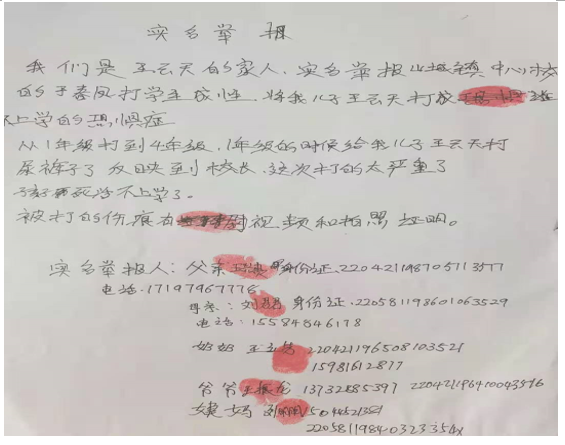 实名举报
我们是王云天的家人，实名举报山城镇中心校
的于春凤打学生成性。将我儿子王云天打成
上学的恐惧症
从1年级打到4年级，1年级的时候给我儿子王云天打
尿裤子了反映到小校长，这次打的太严重了
孩子死活不上学了。
被打的伤痕有视频和拍照证明。
实名举报人：父亲 身份证.220421198705713577
电话.17197967778
母亲：刘 身份证.220581198601063529
电话：15584846178
奶奶 王 220421196508103521
15981612877
爷爷 王 龙 13732885397
姨妈 刘